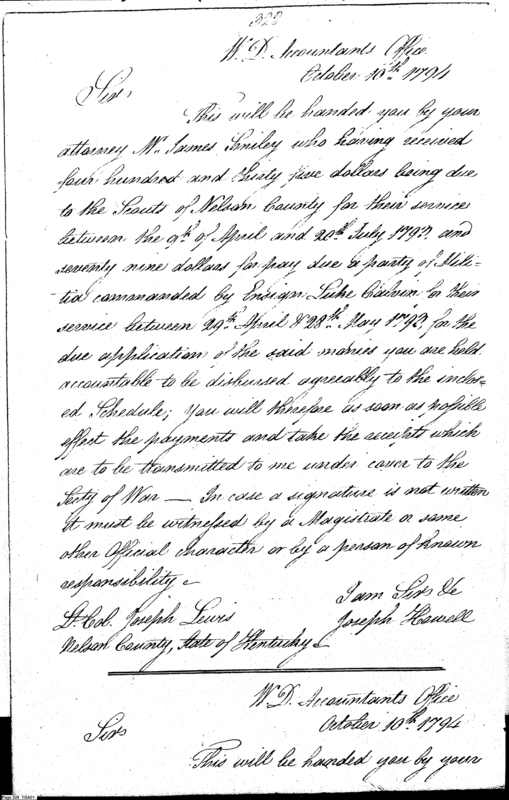 328
W. D. Accountants Office
October 10th. 1794
Sir,
This will be handed you by your
attorney Mr. James Smiley who having received
four hundred and thirty five dollars being due
to the Scouts of Nelson County for their service
between the 9th. of April and 20th. July 1793. and
seventy nine dollars for pay due a party of Mili-
tia commanded by Ensign Luke Calvin for their
service between 29th. April & 28th. May 1793, for the
due application of the said monies you are held
accountable to be disbursed agreeably to the inclos-
ed Schedule; you will therefore as soon as possible
effect the payments and take the receipts which
are to be transmitted to me under cover to the
Secty of War — In case a signature is not written
it must be witnessed by a Magistrate or some
other Official character or by a person of known
responsibility.
I am Sir &c
Lt. Col. Joseph Lewis
Joseph Howell
Nelson County, State of Kentucky
W. D. Accountants Office
October 10th. 1794
Sir
This will be handed you by your